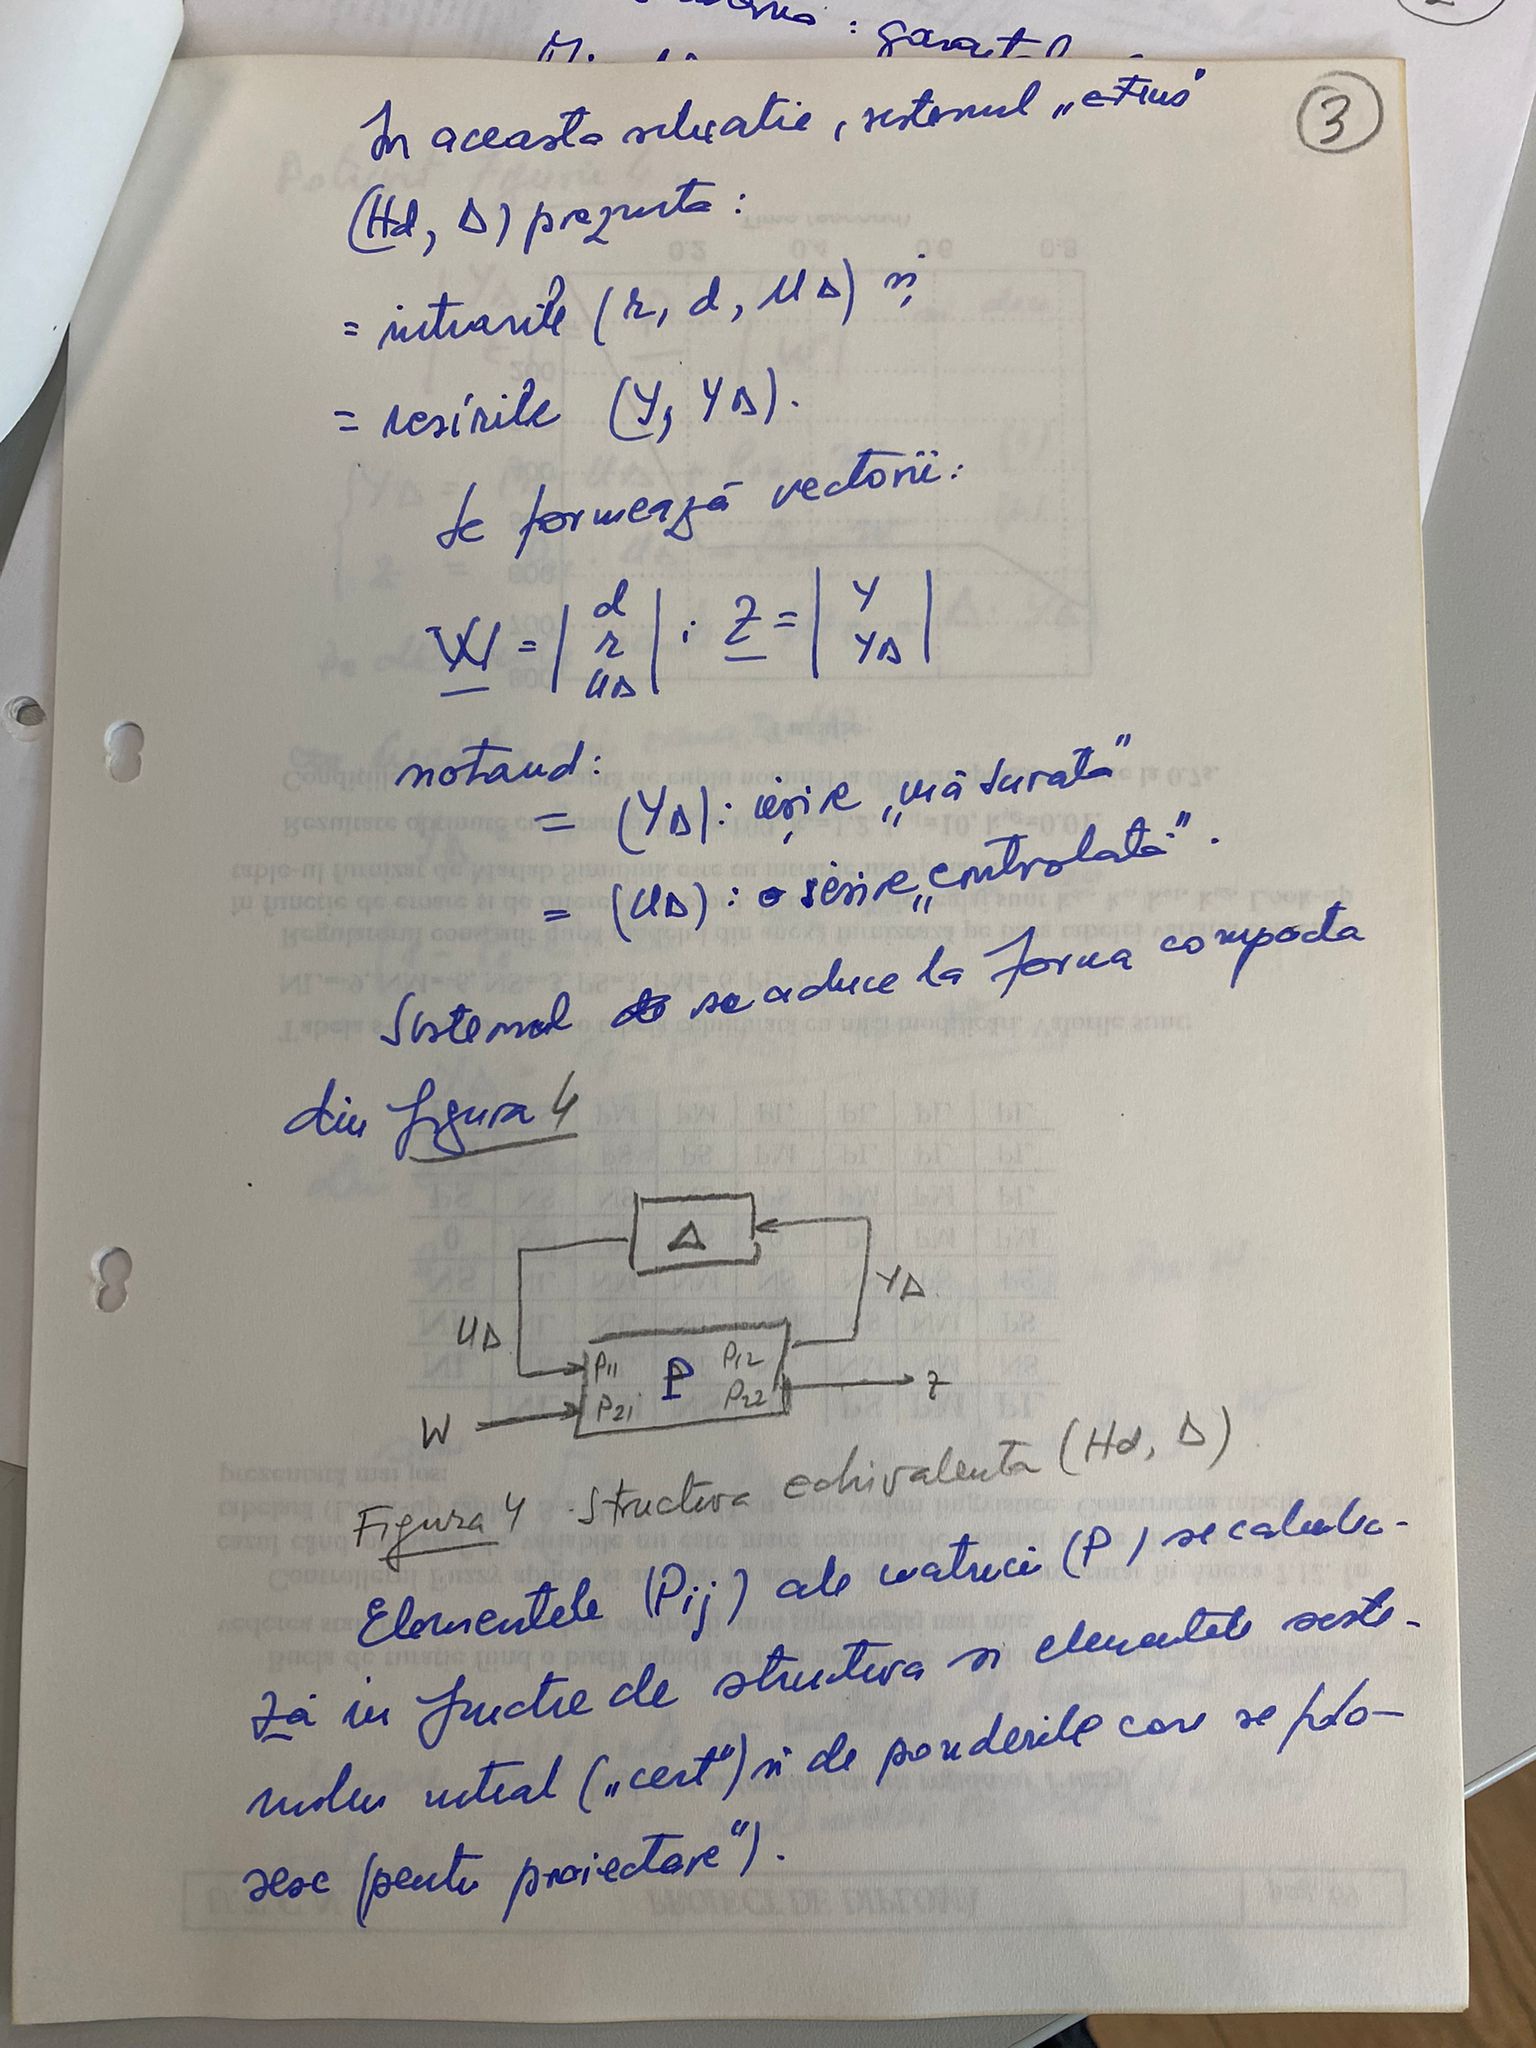 3
In aceasta situatie, sistemul „extins”
(Hd, Δ) prezinta:
= intrarile (r, d, UΔ) și
= iesirile (Y, YΔ).
Se formează vectorii:
W = | d r UΔ | ; Z = | Y YΔ |
notand:
= (YΔ): ieșire „măsurată”
= (UΔ): iesire „controlată”.
Sistemul se aduce la forma compacta
din figura 4
Δ
UΔ
YΔ
P11 P P12
P21 P22
W
Z
Figura 4 Structura echivalenta (Hd, Δ)
Elementele (Pij) ale matricii (P) se calculea-
ză in functie de structura si elementele siste-
mului initial („cert”) si de ponderile care se folo-
sesc (pentru proiectare”).